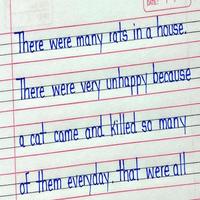 DATE:
There were many rats in a house.
There were very unhappy because
a cat come and killed so many
of them everyday. that were all